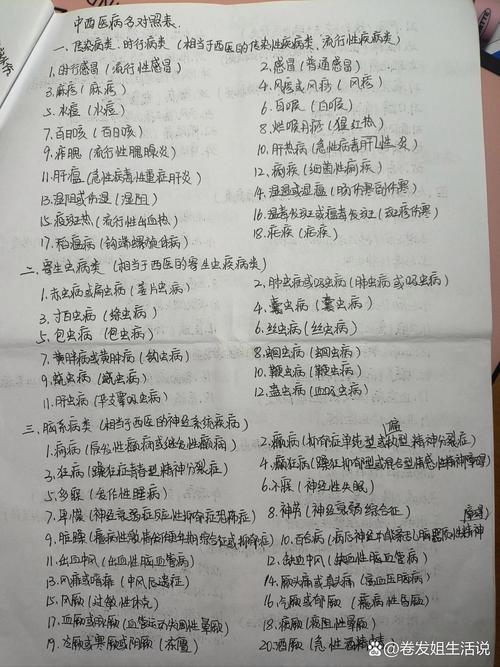 中西医病名对照表.
一、传染病类、时行病类（相当于西医的传染性疾病类、流行性疾病类）
1.时行感冒（流行性感冒） 2.感冒（普通感冒）
3.麻疹（麻疹） 4.风痧或风疹（风疹）
5.水痘（水痘） 6.白喉（白喉）
7.百日咳（百日咳） 8.烂喉丹痧（猩红热）
9.痄腮（流行性腮腺炎） 10.肝热病（急性病毒肝性炎）
11.肝瘟（急性病毒性重症肝炎） 12.痢疾（细菌性痢疾）
13.湿阻或伤湿（湿阻） 14.湿温或湿瘟（肠伤寒副伤寒）
15.疫斑热（流行性出血热） 16.温毒发斑或瘟毒发斑（斑疹伤寒）
17.稻瘟病（钩端螺旋体病） 18.疟疾（疟疾）
二、寄生虫病类（相当于西医的寄生虫疾病类）
1.赤虫病或扁虫病（姜片虫病） 2.肺虫病或吸虫病（肺虫病或吸虫病）
3.寸白虫病（绦虫病） 4.囊虫病（囊虫病）
5.包虫病（包虫病） 6.丝虫病（丝虫病）
7.黄胖病或黄肿病（钩虫病） 8.蛔虫病（蛔虫病）
9.蛲虫病（蛲虫病） 10.鞭虫病（鞭虫病）
11.肝虫病（华支睾吸虫病） 12.蛊虫病（血吸虫病）
三、脑系病类（相当于西医的神经系统疾病）
1.痫病（原发性癫痫或继发性癫痫） 2.癫病（抑郁症单纯型或幻型精神分裂症）
3.狂病（躁狂症青春型精神分裂症） 4.癫狂病（躁狂抑郁型或混合型情感性精神障碍）
5.多寐（发作性睡病） 6.不寐（神经性失眠）
7.卑惵（神经衰弱症反应性抑郁症恐怖症） 8.神劳（神经衰弱综合征）
9.脏躁（癔病性激情或 10.百合病
11.出血中风（出血性脑血管病） 12.缺血中风（缺血性脑血管病）
13.风痱或喑痱（中风后遗症） 14.厥头痛或真头痛（高血压脑病）
15.风厥（过敏性休克） 16.气厥或郁厥（癔病性昏厥）
17.血厥或 18.疲厥
19.冷厥或寒厥或阴厥（冻僵） 20.酒厥（急性酒精
@卷发姐生活说